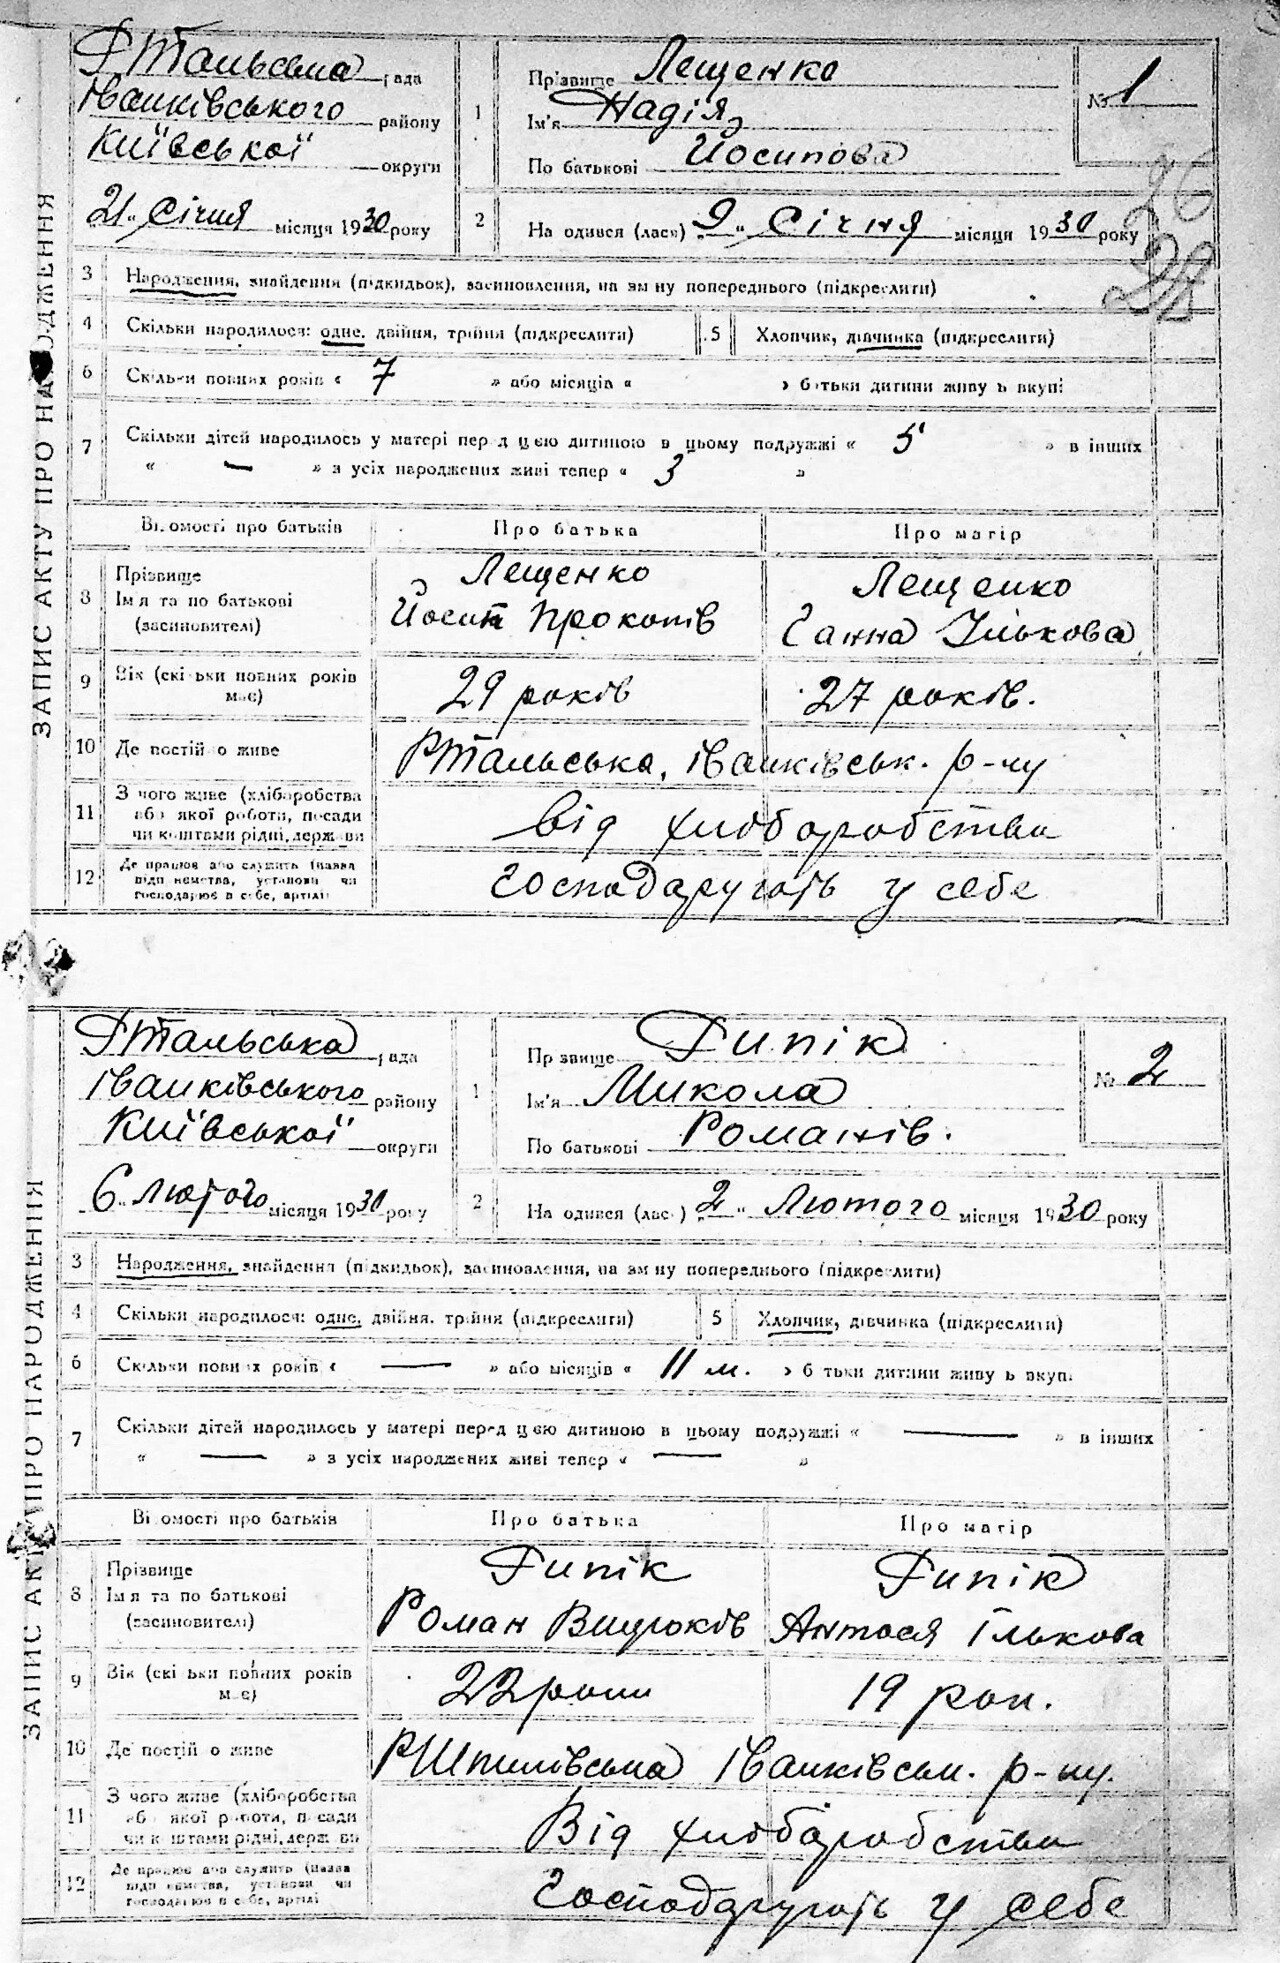 ЗАПИС АКТУ ПРО НАРОДЖЕННЯ
Ртальська рада
Іванківського району
Київської округи
21 „ Січня місяця 1930 року
1
Прізвище Лещенко
Ім'я Надія
По батькові Йосипова
№ 1
2
На одився (лася) „ 9 “ Січня місяця 1930 року
26
3 Народження, знайдення (підкидьок), засиновлення, на зм ну попереднього (підкреслити)
4 Скільки народилося: одне, двійня, трійня (підкреслити)
5 Хлопчик, дівчинка (підкреслити)
6 Скільки повних років « 7 » або місяців « » батьки дитини живу ь вкупі
7 Скільки дітей народилось у матері пер д цією дитиною в цьому подружжі « 5 » в інших
« — » з усіх народжених живі тепер « 3 »
Ві омості про батьків Про батька Про матір
8 Прізвище
Ім я та по батькові
(засиновителі)
Лещенко
Йосип Прокопів
Лещенко
Ганна Ількова
9 Вік (скі ьки повних років має)
29 років 27 років.
10 Де постій о живе
Ртальська, Іванківськ. р-ну
11 З чого живе (хліборобства
або якої роботи, посади
чи коштами рідні, держави
Від хліборобства
12 Де працює або служить (назва
підп иємства, установи чи
господарює в себе, артілі
Господарують у себе
ЗАПИС АКТУ ПРО НАРОДЖЕННЯ
Ртальська рада
Іванківського району
Київської округи
6 „ Лютого місяця 1930 року
1
Пр звище Гипік
Ім'я Микола
По батькові Романів.
№ 2
2
На одився (лас ) „ 2 “ Лютого місяця 1930 року
3 Народження, знайдення (підкидьок), засиновлення, на зм ну попереднього (підкреслити)
4 Скільки народилося: одне, двійня, трійня (підкреслити)
5 Хлопчик, дівчинка (підкреслити)
6 Скільки повних років « — » або місяців « 11 м. » б тьки дитини живу ь вкупі
7 Скільки дітей народилось у матері перед цією дитиною в цьому подружжі « — » в інших
« — » з усіх народжених живі тепер « — »
Ві омості про батьків Про батька Про матір
8 Прізвище
Ім я та по батькові
(засиновителі)
Гипік
Роман
Гипік
Антося Ількова
9 Вік (скі ьки повних років має)
22 роки 19 рок.
10 Де постій о живе
Іванківськ. р-ну.
11 З чого живе (хліборобства
або якої роботи, посади
чи коштами рідні, держави
Від хліборобства
12 Де працює або служить (назва
підп иємства, установи чи
господарює в себе, артілі
Господарують у себе